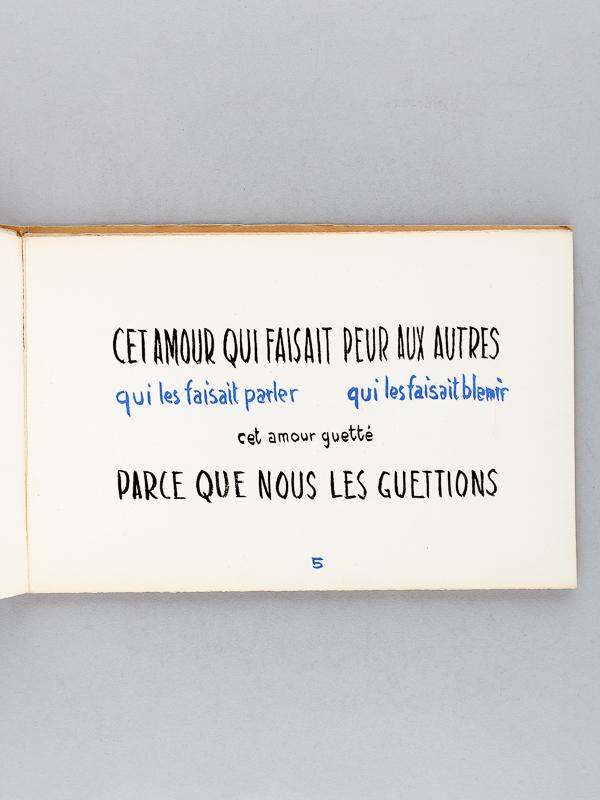 CET AMOUR QUI FAISAIT PEUR AUX AUTRES
qui les faisait parler qui les faisait blemir
cet amour guetté
PARCE QUE NOUS LES GUETTIONS
5